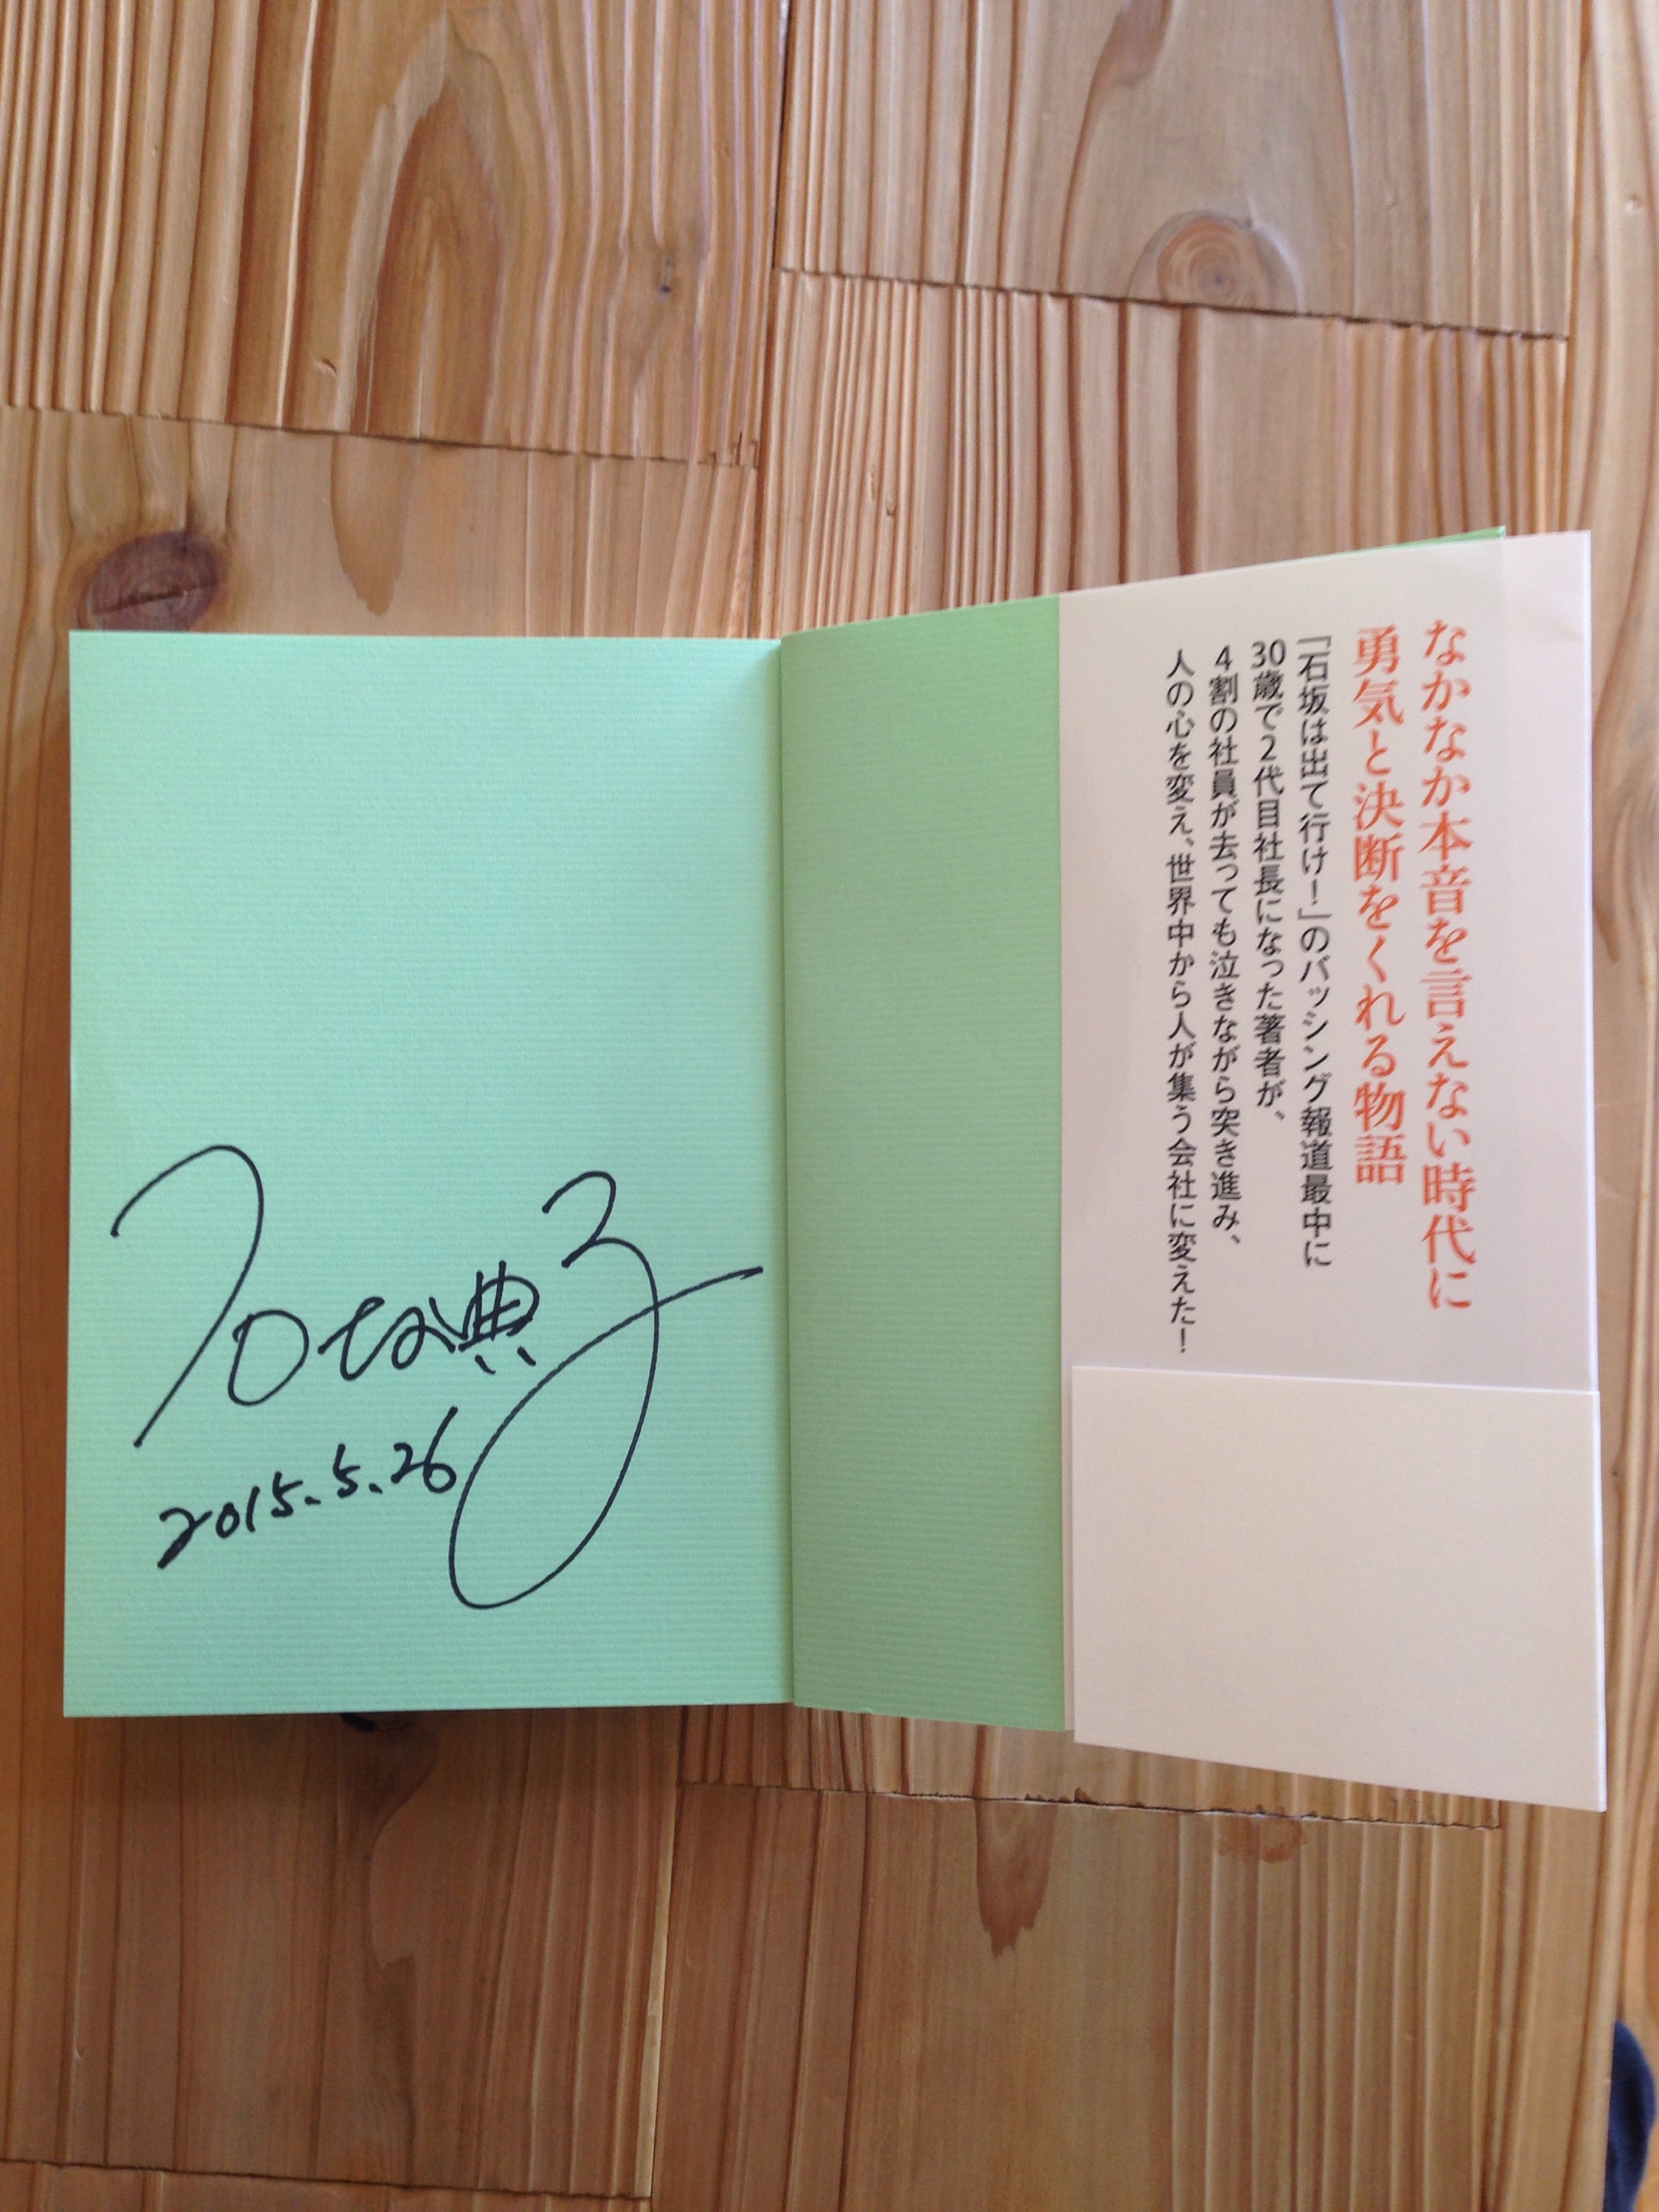 なかなか本音を言えない時代に
勇気と決断をくれる物語
「石坂は出て行け！」のバッシング報道最中に
30歳で2代目社長になった著者が、
4割の社員が去っても泣きながら突き進み、
人の心を変え、世界中から人が集う会社に変えた！
石坂典子
2015.5.26